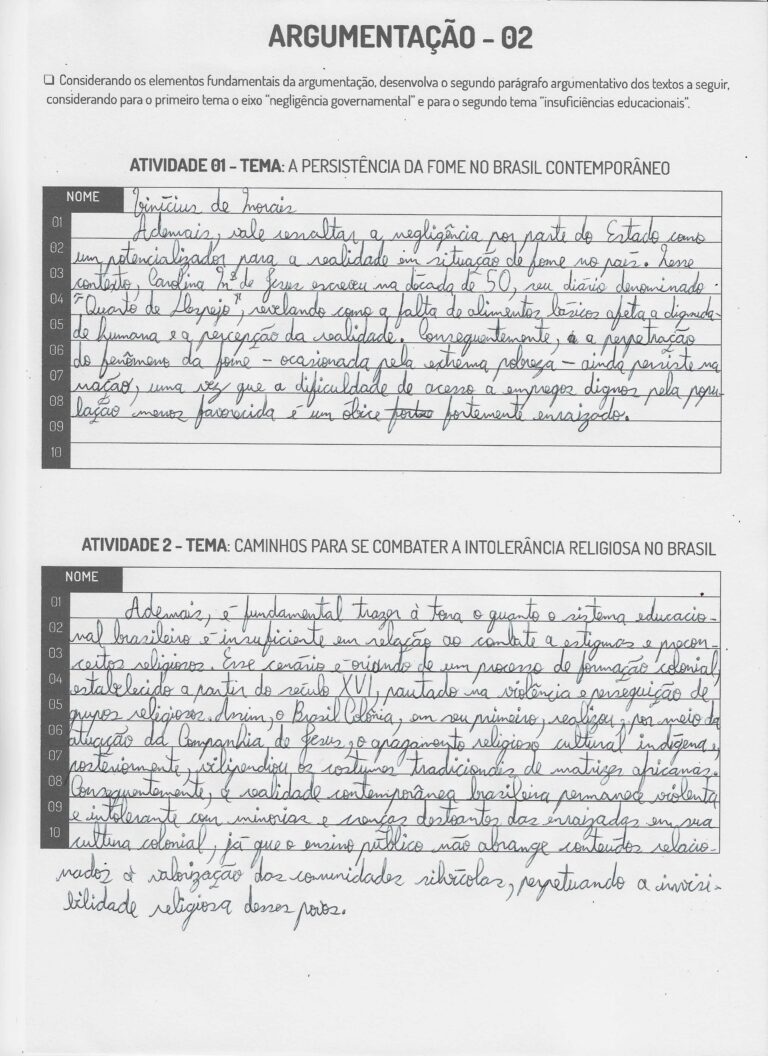 ARGUMENTAÇÃO - 02
❑ Considerando os elementos fundamentais da argumentação, desenvolva o segundo parágrafo argumentativo dos textos a seguir,
considerando para o primeiro tema o eixo "negligência governamental" e para o segundo tema "insuficiências educacionais".
ATIVIDADE 01 - TEMA: A PERSISTÊNCIA DA FOME NO BRASIL CONTEMPORÂNEO
NOME Vinícius de Morais
01 Ademais, vale ressaltar a negligência por parte do Estado como
02 um potencializador para a realidade em situação de fome no país. Nesse
03 contexto, Carolina Mª de Jesus escreveu na década de 50, seu diário denominado
04 "Quarto de Despejo", revelando como a falta de alimentos básicos afeta a dignida-
05 de humana e a percepção da realidade. Consequentemente, a perpetração
06 do fenômeno da fome - ocasionada pela extrema pobreza - ainda persiste na
07 nação, uma vez que a dificuldade de acesso a empregos dignos pela popu-
08 lação menos favorecida é um óbice fortemente enraizado.
09
10
ATIVIDADE 2 - TEMA: CAMINHOS PARA SE COMBATER A INTOLERÂNCIA RELIGIOSA NO BRASIL
NOME
01 Ademais, é fundamental trazer à tona o quanto o sistema educacio-
02 nal brasileiro é insuficiente em relação ao combate a estigmas e precon-
03 ceitos religiosos. Esse cenário é oriundo de um processo de formação colonial,
04 estabelecido a partir do século XVI, pautado na violência e perseguição de
05 grupos religiosos. Assim, o Brasil Colônia, em seu primeiro, realizou, por meio da
06 atuação da Companhia de Jesus, o apagamento religioso cultural indígena e,
07 posteriormente, vilipendiou os costumes tradicionais de matrizes africanas.
08 Consequentemente, a realidade contemporânea brasileira permanece violenta
09 e intolerante com minorias e crenças destoantes das enraizadas em sua
10 cultura colonial, já que o ensino público não abrange conteúdos relacio-
nados à valorização das comunidades silvícolas, perpetuando a invisi-
bilidade religiosa desses povos.